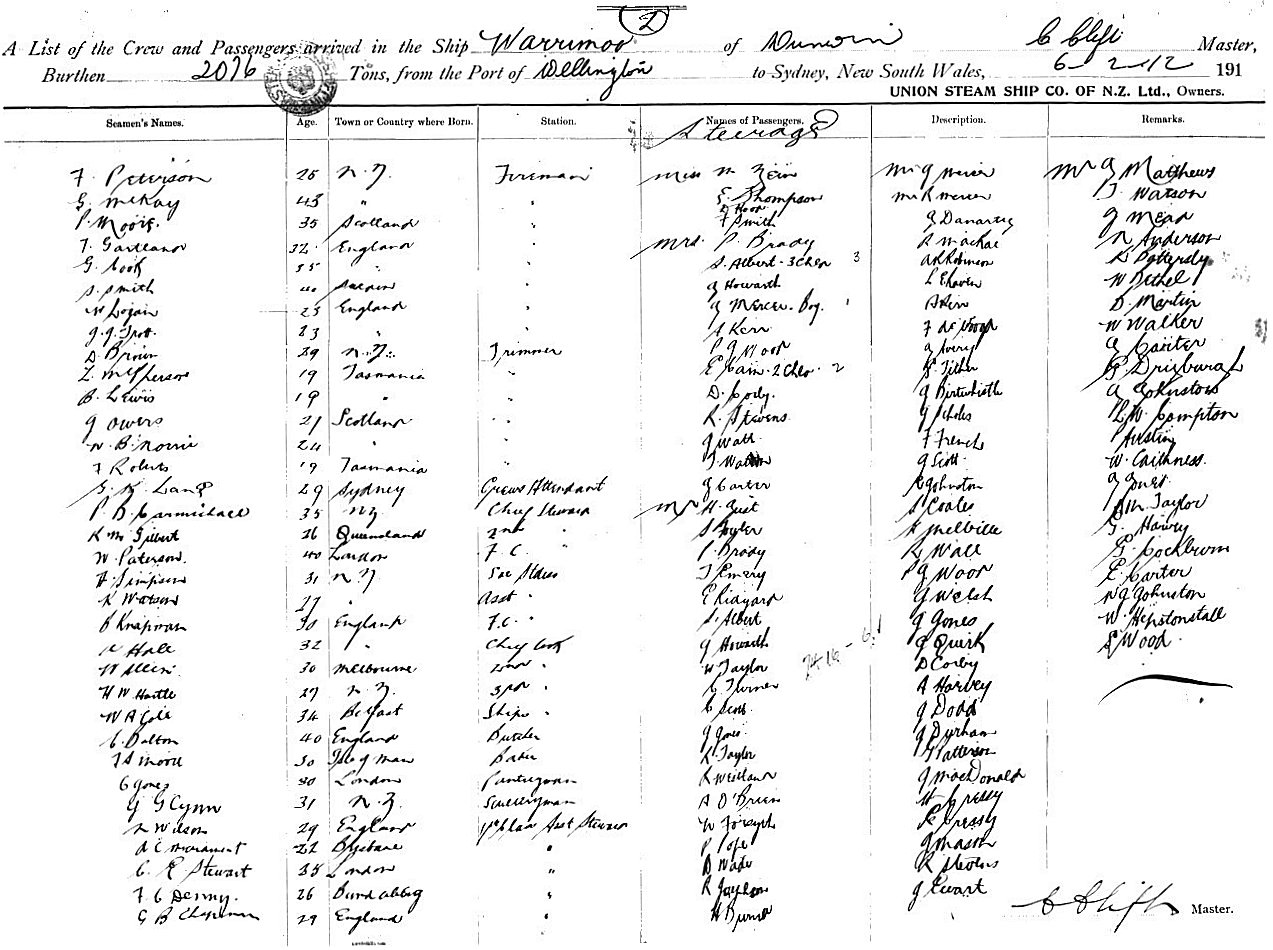 2
A List of the Crew and Passengers arrived in the Ship Warrimoo of Dunedin C Clift Master,
Burthen 2076 Tons, from the Port of Wellington to Sydney, New South Wales, 6-2-12 191
UNION STEAM SHIP CO. OF N.Z. Ltd., Owners.
Seamen's Names. Age. Town or Country where Born. Station. Names of Passengers. Description. Remarks.
Steerage
F. Peterson 25 N.Z. Fireman Miss M Mr J Mercer Mr J Matthews
G. McKay 43 " " E. Thompson Mr R Mercer J Watson
P. Moore 35 Scotland " F Smith J Mead
F. Gartland 32 England " Mrs. P. Brady R Mackae N Anderson
G. Cook 35 " " S. Albert - 3 Chdn 3 A R Robinson
S. Smith 40 Sweden " J Howarth W Bethel
W Logan 25 England " J Mercer - Boy 1 D. Martin
J. J. Trott 23 " " A Kerr W Walker
D Brown 29 N.Z. Trimmer P J Moor J Avery Carter
McPherson 19 Tasmania " E Cain 2 Chdn 2 Dryburgh
B. Lewis 19 " " D. Corby. J Birtwhistle Johnston
J Owers 21 Scotland " R. Stevens J Scholes W. Compton
W. B. Norrie 24 " " J Watt F French
F Roberts 19 Tasmania " J Watson J Scott W. Caithness.
G. K. Lang 29 Sydney Crews Attendant J Carter Johnston J Jones
P. B. Carmichael 35 N.Z. Chief Steward Mr H. Gist S Coates Taylor
R M Gilbert 26 Queensland 2nd " S Melville Harvey
W. Paterson. 40 London F.C. " P. Brady R Wall G. Cockburn
A Simpson 31 N.Z. T Emery P J Moor E. Carter
K Watson 27 " Asst " E Ridyard J Welsh N J Johnston
Knapman 30 England F.C. " S. Albert J Jones W. Heptonstall
Hale 32 " Chief Cook J Howarth J Quirk S Wood.
W Allein 30 Melbourne 2nd " W Taylor D Corby
H W Hartle 27 N.Z. 3rd " C Turner A Harvey
W A Cole 34 Belfast Ships " C Scott J Dodd
C. Dalton 40 England Butcher J Jones J Durham
J A Moore 30 Isle of Man Baker K. Taylor Patterson
C Jones 30 London Pantryman J MacDonald
G Glynn 31 N.Z. Scullery man A O'Brien H Cressy
N Wilson 29 England 1st Class Asst Steward W Forsyth Cressy
A C 22 Brisbane " P Pope J Mason
C. R Stewart 35 London " D Wade R Stevens
F. C Denny. 26 Bundaberg " R J Ewart
G B Chapman 29 England " H
C Clift Master.